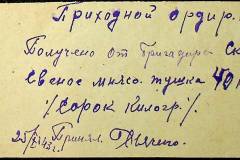 Приходной ордир.
Получено от Бригадира Ск
Свеное мнясо. тушка 40 к
/Сорок Килогр./.
25/I 43 г. Принял.